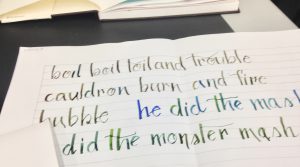 boil boil toil and trouble
cauldron burn and fire
bubble he did the mash
did the monster mash